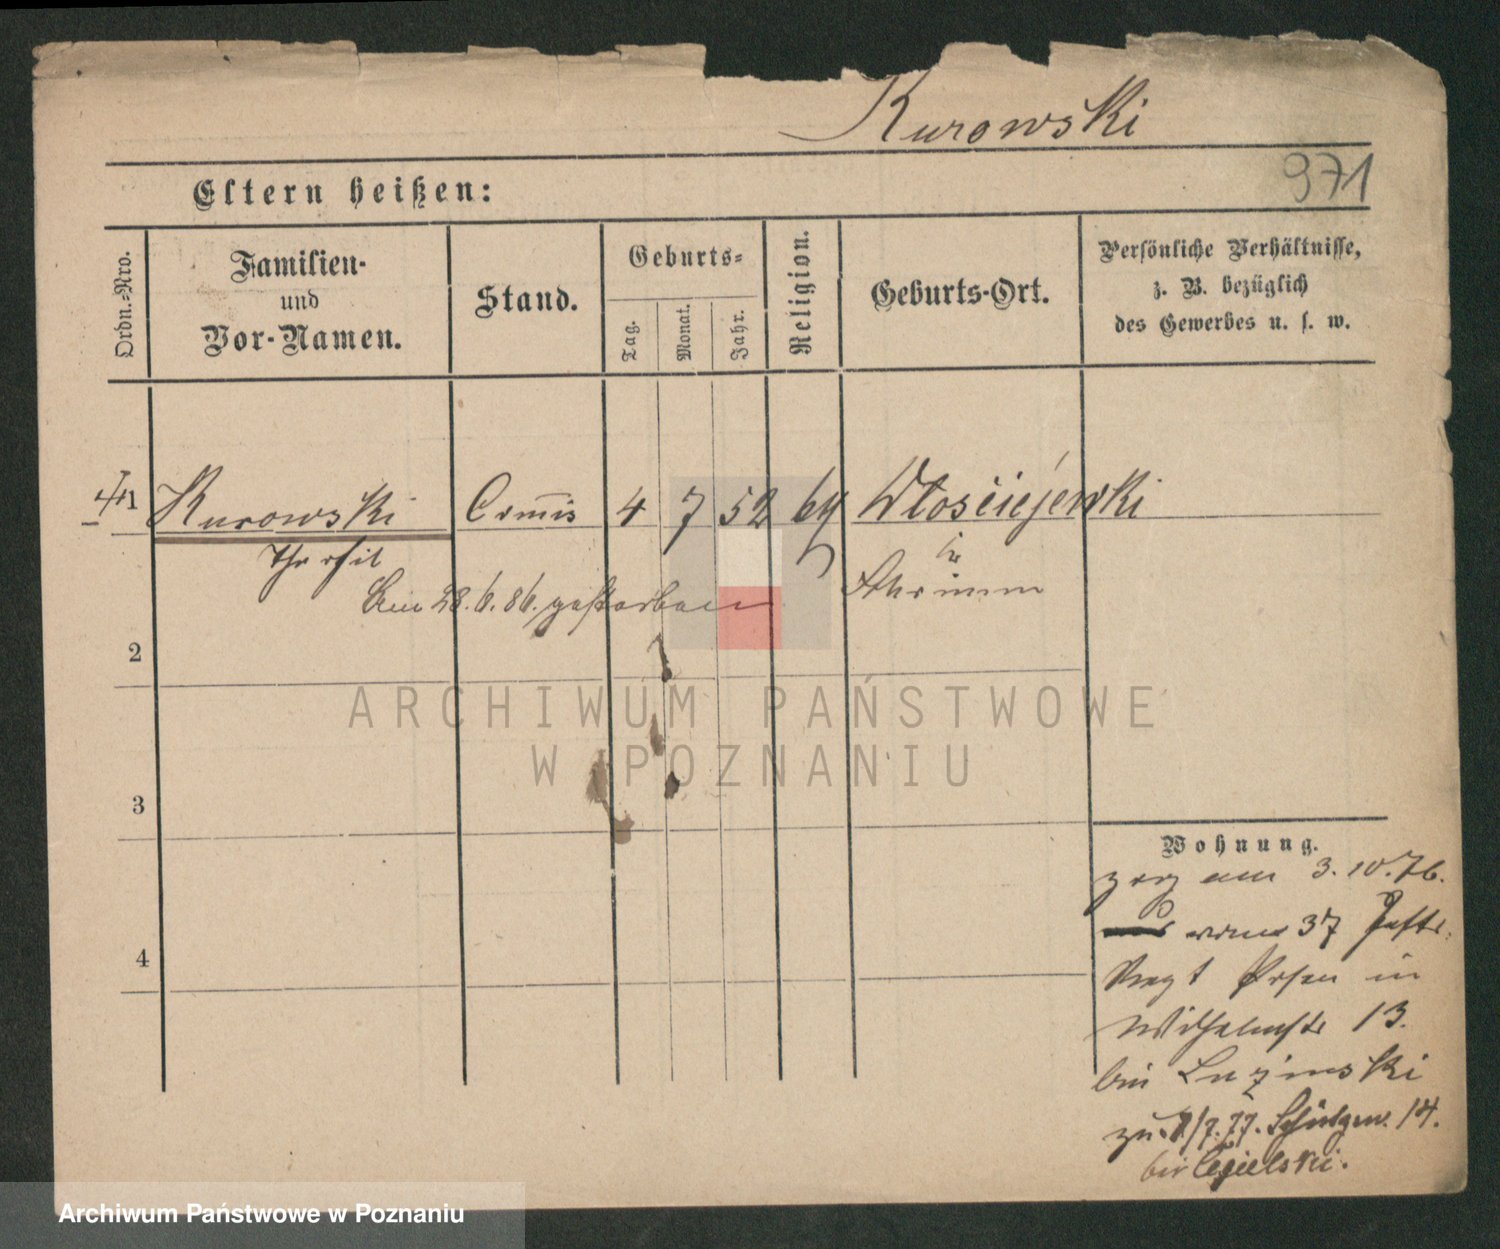 Kurowski
971
Eltern heißen:
Ordn.=Nro.
Familien-
und
Vor-Namen.
Stand.
Geburts=
Tag.
Monat.
Jahr.
Religion.
Geburts-Ort.
Persönliche Verhältnisse,
z. B. bezüglich
des Gewerbes u. s. w.
1 Kurowski Commis 4 7 52 Włościejewki
in
am 28.6.86. gestorben Schrimm
2
3
4
Wohnung.
zog am 3.10.76.
vom 37
Regt Posen in
Wilhelmstr 13.
bei Luzinski
zu. 1/7.77. Schützenstr. 14.
bei Cegielski.
ARCHIWUM PAŃSTWOWE
W POZNANIU
Archiwum Państwowe w Poznaniu